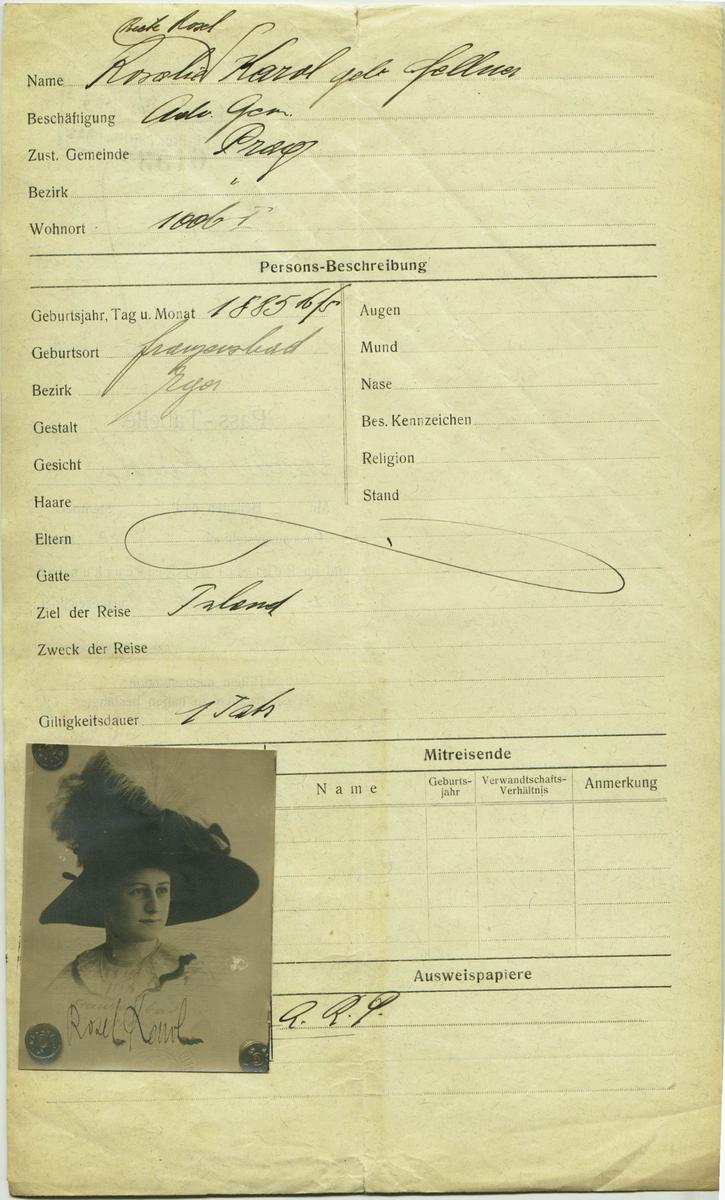 Rosel
Name Rosalie Karol geb. Fellner
Beschäftigung Adv. Gem.
Zust. Gemeinde Prag
Bezirk "
Wohnort 1006 I
Persons-Beschreibung
Geburtsjahr, Tag u. Monat 1885
Geburtsort Franzensbad
Bezirk Eger
Gestalt
Gesicht
Haare
Augen
Mund
Nase
Bes. Kennzeichen
Religion
Stand
Eltern
Gatte
Ziel der Reise Inland
Zweck der Reise
Giltigkeitsdauer 1 Jahr
Mitreisende
Name
Geburts-
jahr
Verwandtschafts-
Verhältnis
Anmerkung
Rosel Karol
Ausweispapiere
A. R. P.
Pass-Tabelle